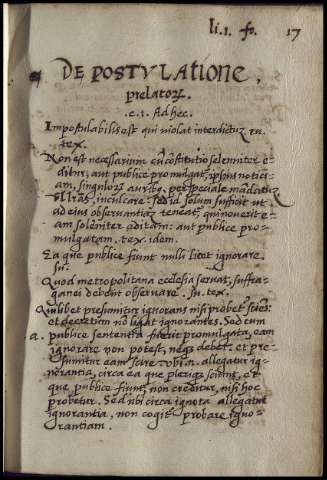 li. 1. fo. 17
DE POSTVLATIONE,
prelatorꝝ.
c. 1. Ad hec.
Impostulabilis est qui violat interdictuʒ ru.
tex.
Non est necessarium cū cōstitutio solemniter e-
ditur, aut publice promulgat, ipsius notici-
am, singulorꝝ auribꝯ, per speciale mādatuʒ
vel lr̃as, inculcare. sed id solum sufficit ut
ad eius obseruantiam teneat̃, qui nouerit e-
am solēniter editam: aut publice pro-
mulgatam. tex. idem.
Ea que publice fiunt nulli licet ignorare.
su.
Quod metropolitana ecclesia seruat, suffra-
ganei debent obseruare. su. tex.
Quilibet presumitur ignorans nisi probet̃
et decretum nō ligat ignorantes. Sed cum
a. publice sententia fuerit promulgata, eam
ignorare non potest, neqꝫ debet: et pre-
sumitur eam scire allegatur ig-
norantia, circa ea que pleriqꝫ sciunt, et
que publice fiunt, non creditur, nisi hoc
probetur. Sed ubi circa ignota allegatur
ignorantia, non cogit̃ probare igno-
rantiam.